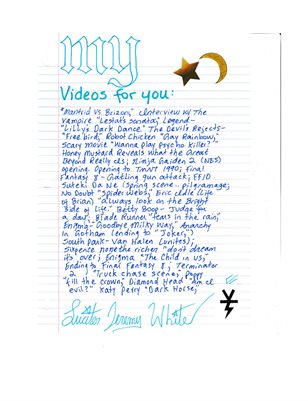 my
Videos for you:
"Mantrid Vs. Brizon," Interview w/ The
Vampire "Lestat's Sonata," Legend-
"Lilly's Dark Dance." The Devil's Rejects-
"Free bird," Robot Chicken "Gay Rainbow,"
Scary movie "Wanna play Psycho Killer?"
Honey Mustard Reveals what the Great
Beyond Really is; Ninja Gaiden 2 (NES)
opening. Opening to TMNT 1990; Final
Fantasy 8 - Gatling gun attack; FF10
Suteki Da Ne (Spring scene.. pilgramage;
No Doubt "Spider webs; Eric Idle (Life
of Brian) "always look on the Bright
Side of Life." Betty Boop - Judge for
a day; Blade Runner "tears in the rain,
Enigma-Goodbye Milky Way; Anarchy
In Gotham (ending to "Joker,")
South park- Van Halen (unites);
Sixpence none the richer "don't dream
it's over; Enigma "The Child in us;
Ending to Final Fantasy 8; Terminator
2 "Truck chase scene, Poppy
"fill the crown; Diamond Head "Am I
evil?" Katy Perry "Dark Horse;
Jeremy White